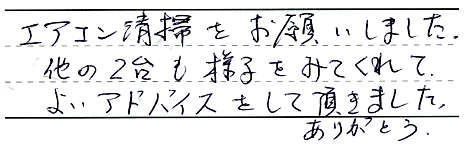 エアコン清掃をお願いしました.
他の2台も様子をみてくれて.
よいアドバイスをして頂きました,
ありがとう.